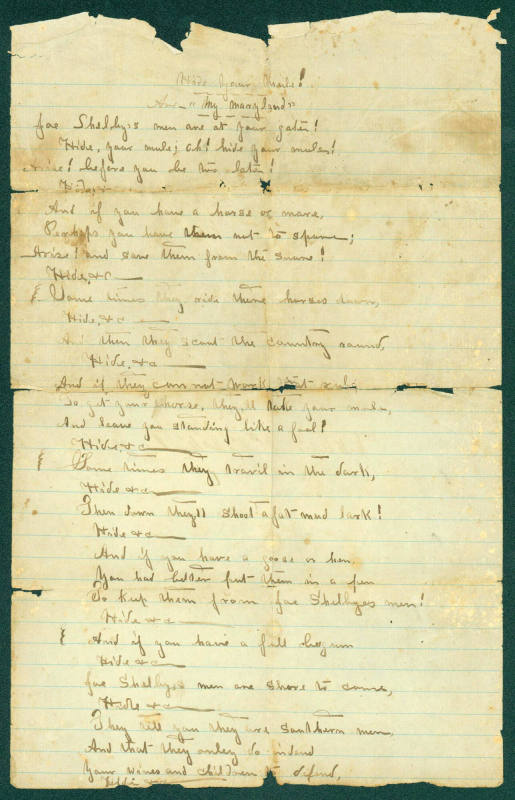 Hide Your Mule!
Air – "My Maryland"
Joe Shelby's men are at your gate!
Hide, your mule; oh! hide your mule!
Arise! before you be too late!
Hide, &
And if you have a horse or mare,
Perhaps you have them not to spare;
Arise! and save them from the snare!
Hide, &c
Some times they ride there horses down,
Hide, &c
And then they scout the country round,
Hide, &c
And if they can not work that rule
To get your horse, they'll take your mule,
And leave you standing like a fool!
Hide, &c
Some times they travil in the dark,
Hide &c
Then down they'll shoot a fat mud lark!
Hide &c
And if you have a goose or hen
You had better put them in a pen
To keep them from Joe Shelbyes men!
Hide &c
And if you have a full begun
Hide &c
Joe Shelbyes men are shore to come,
Hide &c
They tell you they are southern men
And that they onley do intend
Your wives and children to defend,
Hide &c